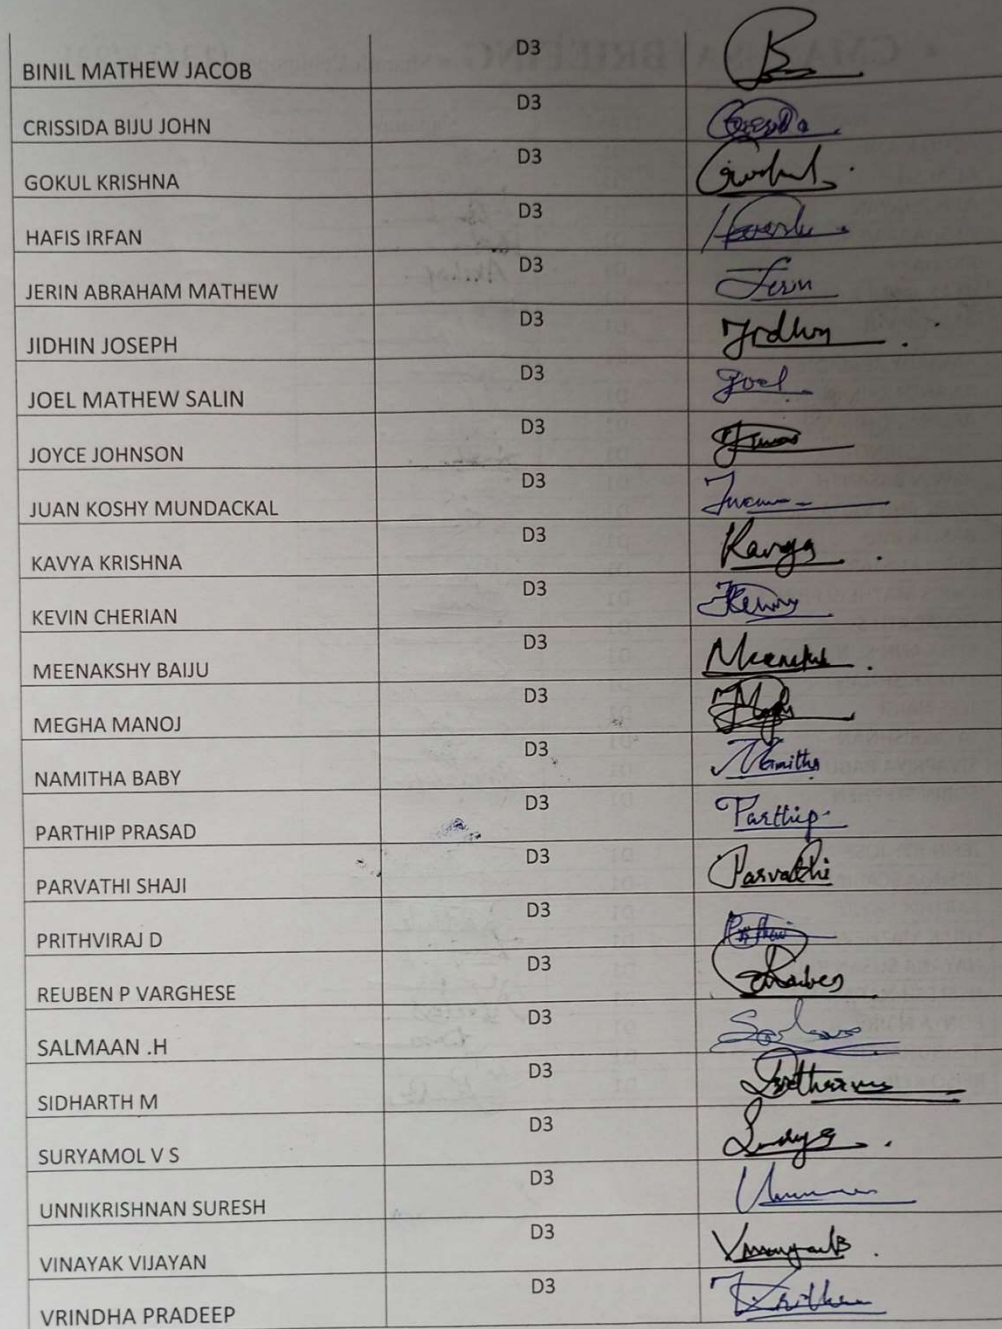 BINIL MATHEW JACOB D3 B
CRISSIDA BIJU JOHN D3
GOKUL KRISHNA D3 Gokul
HAFIS IRFAN D3
JERIN ABRAHAM MATHEW D3 Jerin
JIDHIN JOSEPH D3 Jidhin
JOEL MATHEW SALIN D3 Joel
JOYCE JOHNSON D3
JUAN KOSHY MUNDACKAL D3 Juan
KAVYA KRISHNA D3 Kavya
KEVIN CHERIAN D3 Kevin
MEENAKSHY BAIJU D3
MEGHA MANOJ D3 Megha
NAMITHA BABY D3 Namitha
PARTHIP PRASAD D3 Parthip
PARVATHI SHAJI D3 Parvathi
PRITHVIRAJ D D3
REUBEN P VARGHESE D3 Reuben
SALMAAN .H D3
SIDHARTH M D3
SURYAMOL V S D3 Surya
UNNIKRISHNAN SURESH D3
VINAYAK VIJAYAN D3
VRINDHA PRADEEP D3